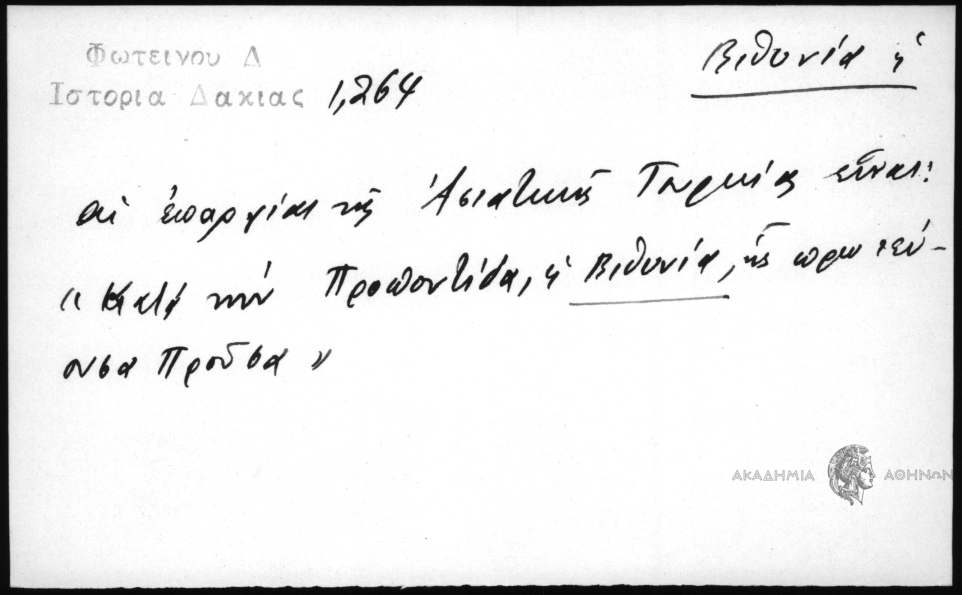 Φωτεινου Δ
Ιστορια Δακιας 1,264
Βιθυνία ἡ
αἱ ἐπαρχίαι τῆς Ἀσιατικῆς Τουρκίας εἶναι:
"κατὰ τὴν Προποντίδα, ἡ Βιθυνία, ἧς πρωτεύ-
ουσα Προῦσα"
ΑΚΑΔΗΜΙΑ ΑΘΗΝΩΝ